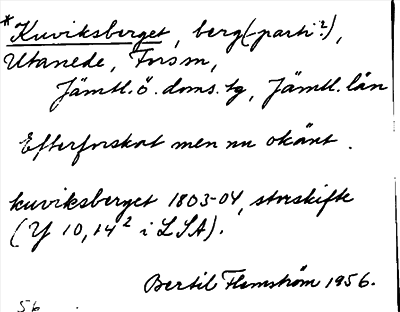 *Kuviksberget, berg(parti?),
Utanede, Forsm,
Jämtl. ö. doms. tg, Jämtl. län
Efterforskat men nu okänt.
kuviksberget 1803-04, storskifte
(Y 10, 14² i LSA).
Bertil Flemström 1956.
56